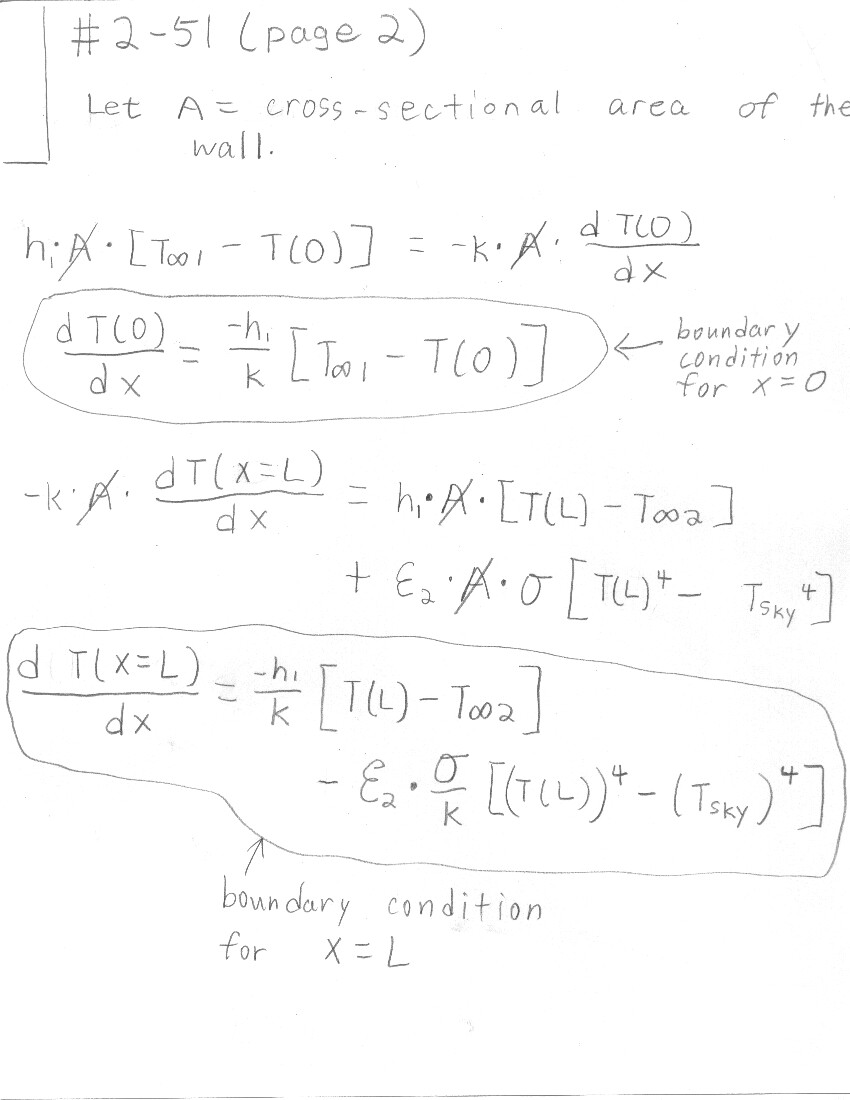 #2-51 (page 2)
Let A = cross-sectional area of the
wall.
h₁·A·[T∞1 - T(0)] = -k·A·dT(0)/dx
dT(0)/dx = -h₁/k [T∞1 - T(0)]
← boundary
condition
for x=0
-k·A·dT(x=L)/dx = h₁·A·[T(L) - T∞2]
+ ε₂·A·σ[T(L)⁴ - Tsky⁴]
d T(x=L)/dx = -h₁/k [T(L) - T∞2]
- ε₂·σ/k [(T(L))⁴ - (Tsky)⁴]
boundary condition
for x=L